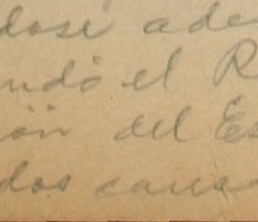 dose ade
undó el R
ión del Es
dos caus